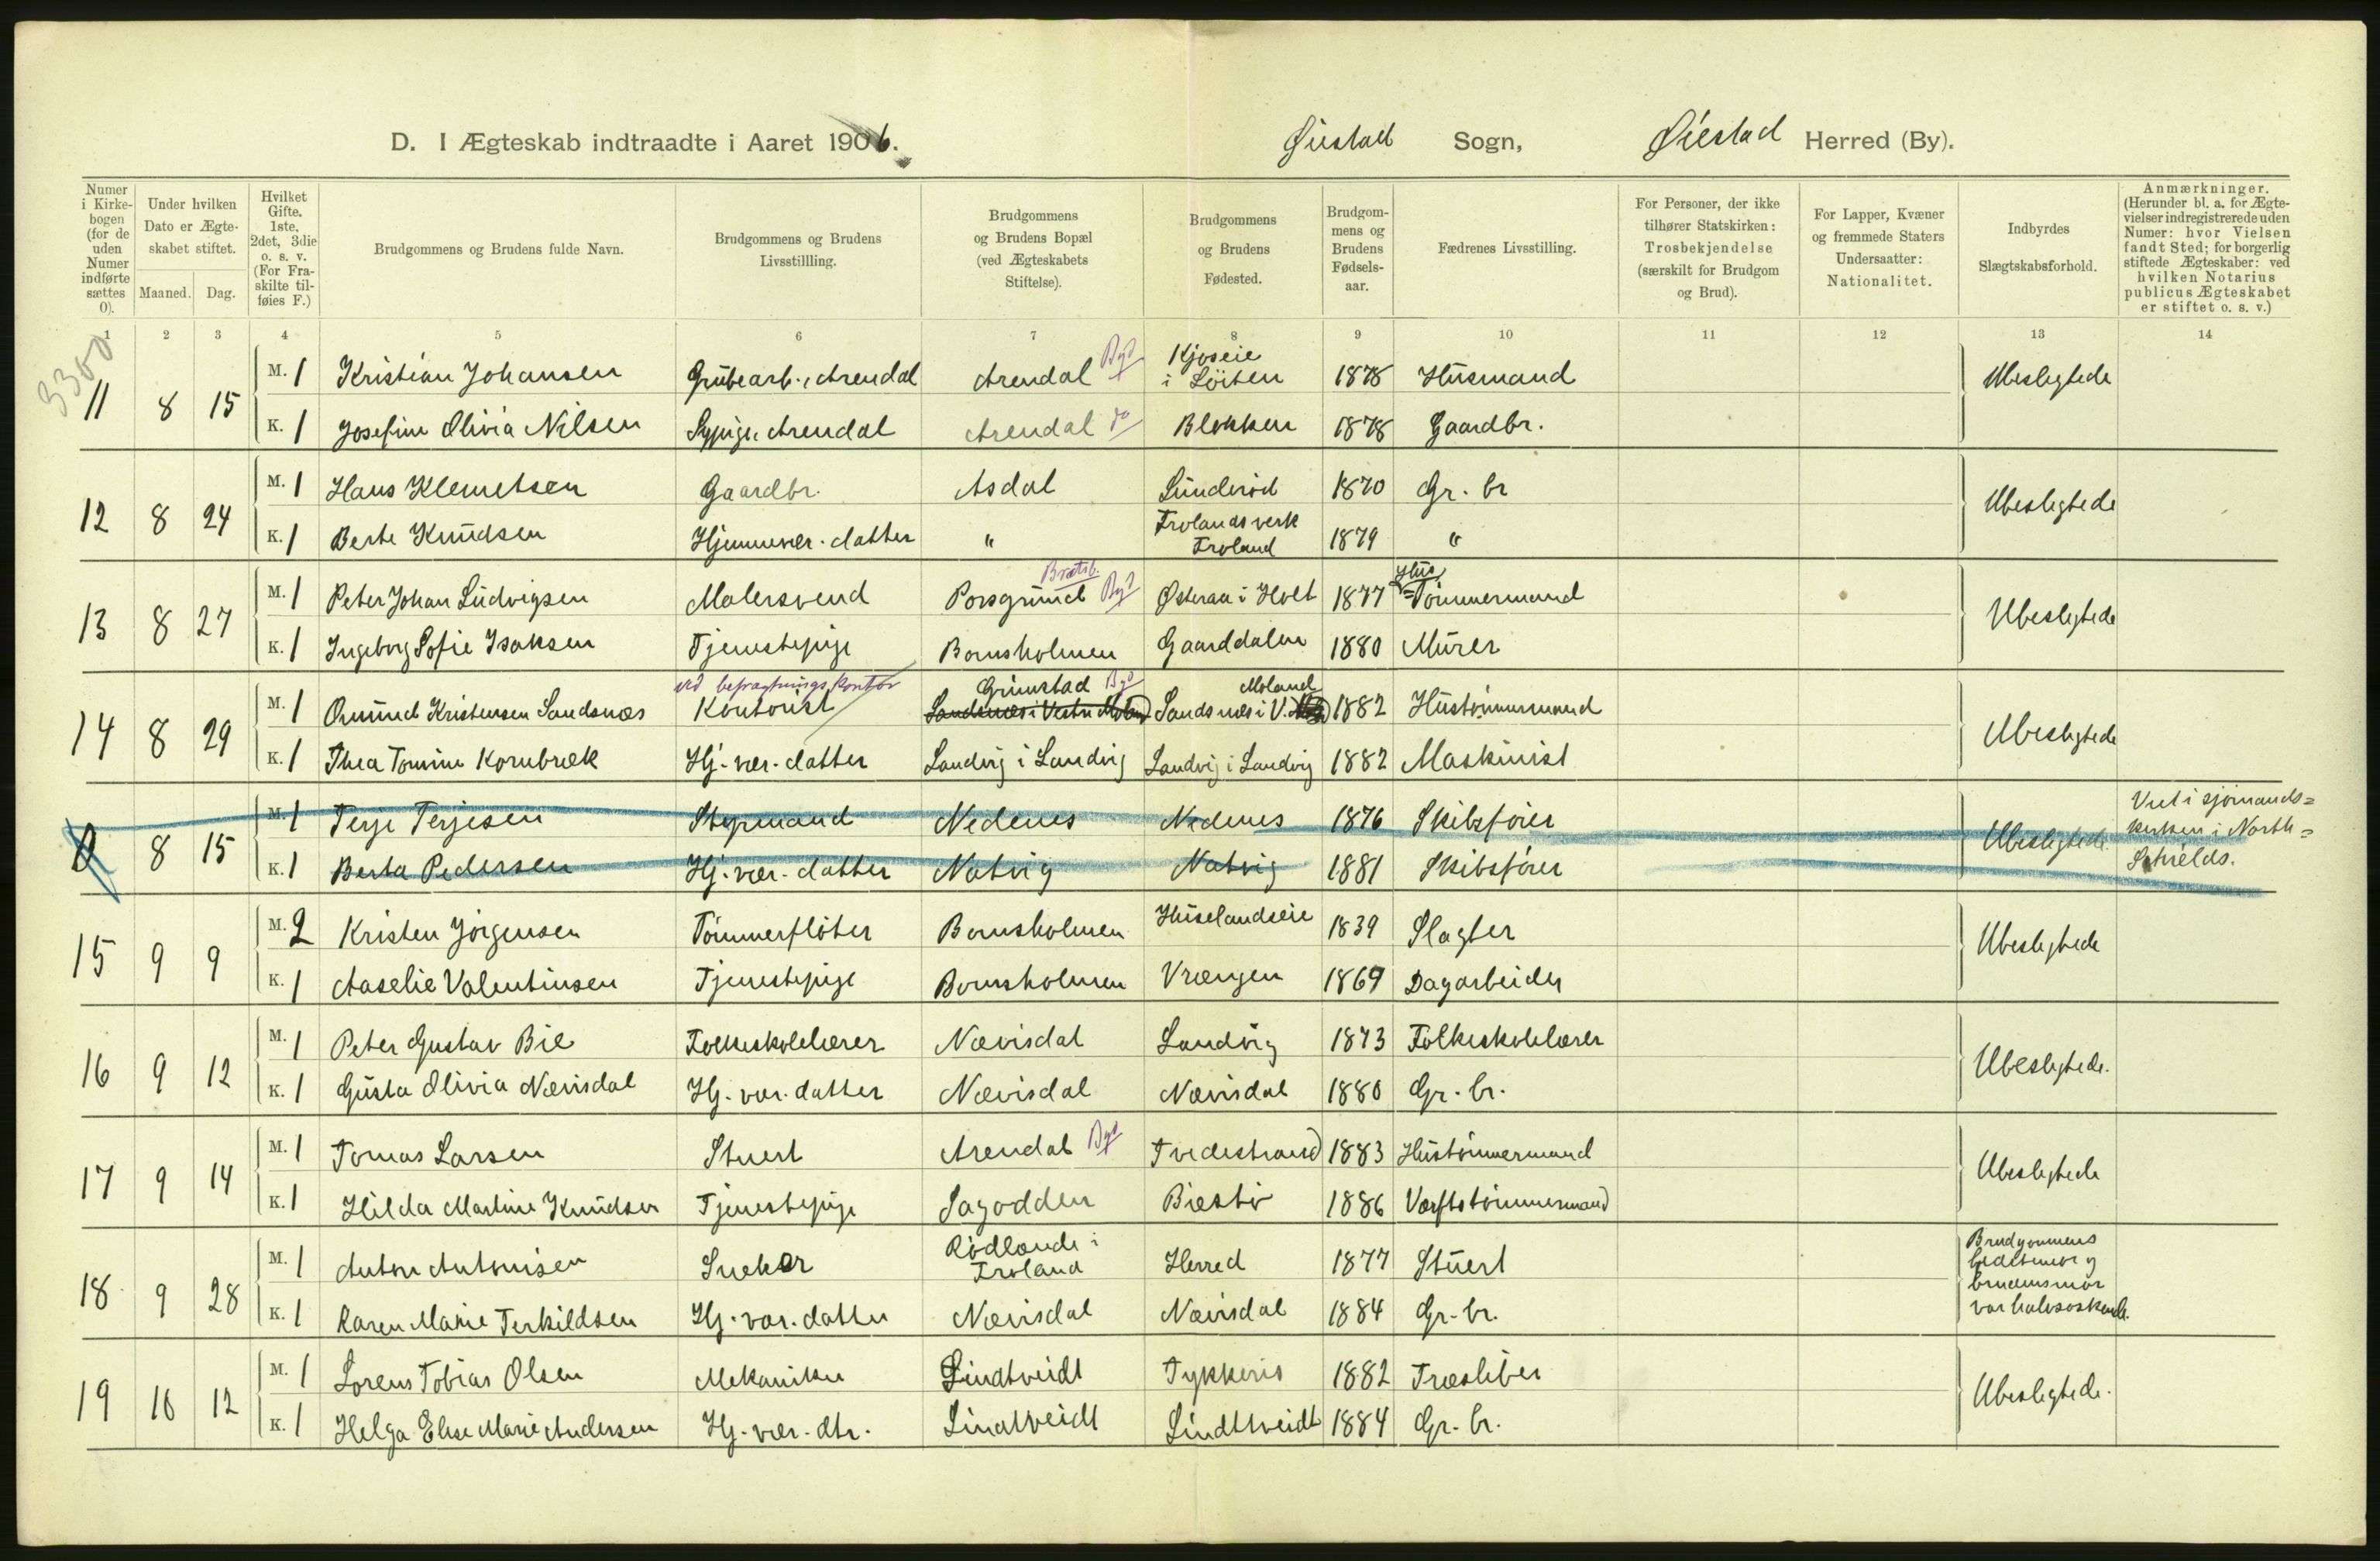 D. I Ægteskab indtraadte i Aaret 1906. Øiestad Sogn, Øiestad Herred (By).
Numer i Kirkebogen (for de uden Numer indførte sættes 0).
Under hvilken Dato er Ægteskabet stiftet. Maaned. Dag.
Hvilket Gifte. 1ste, 2det, 3die o. s. v. (For Fraskilte tilføies F.)
Brudgommens og Brudens fulde Navn.
Brudgommens og Brudens Livsstillling.
Brudgommens og Brudens Bopæl (ved Ægteskabets Stiftelse).
Brudgommens og Brudens Fødested.
Brudgommens og Brudens Fødselsaar.
Fædrenes Livsstilling.
For Personer, der ikke tilhører Statskirken: Trosbekjendelse (særskilt for Brudgom og Brud).
For Lapper, Kvæner og fremmede Staters Undersaatter: Nationalitet.
Indbyrdes Slægtskabsforhold.
Anmærkninger. (Herunder bl. a. for Ægtevielser indregistrerede uden Numer: hvor Vielsen fandt Sted; for borgerlig stiftede Ægteskaber: ved hvilken Notarius publicus Ægteskabet er stiftet o. s. v.)
1 2 3 4 5 6 7 8 9 10 11 12 13 14
3300
11 8 15 M. 1 Kristian Johansen Grubearb. i Arendal Arendal Byd Kjoseie i Löiten 1878 Husmand Ubeslegtede
K. 1 Josefine Olivia Nilsen Sypige Arendal Arendal do Blekken 1878 Gaardbr.
12 8 24 M. 1 Hans Klemetsen Gaardbr. Asdal Lunderöd 1870 Gr. br Ubeslegtede
K. 1 Berte Knudsen Hjemmevær. datter " Frolandsverk Froland 1879 "
13 8 27 M. 1 Peter Johan Ludvigsen Malersvend Porsgrund Bratsb. Byd Østeraa i Holt 1877 Hus=Tömmermand Ubeslegtede
K. 1 Ingeborg Sofie Isaksen Tjenestepige Bomsholmen Gaarddalen 1880 Murer
14 8 29 M. 1 Omund Kristensen Sandsnæs ved befragtningskontor Kontorist Grimstad Byd Sandsnæs i Vestre Moland Sandsnæs i V. Moland 1882 Hustömmermand Ubeslegtede
K. 1 Thea Tomine Kornbrek Hj. vær. datter Landvig i Landvig Landvig i Landvig 1882 Maskinist
0 8 15 M. 1 Terje Terjesen Styrmand Nedenes Nedenes 1876 Skibsförer Ubeslegtede Viet i sjömands=
kirken i North=
Schields.
K. 1 Berta Pedersen Hj. vær. datter Natvig Natvig 1881 Skibsförer
15 9 9 M. 2 Kristen Jörgensen Tömmerflöter Bomsholmen Huselandseie 1839 Slagter Ubeslegtede
K. 1 Aaselie Valentinsen Tjenestepige Bomsholmen Vrængen 1869 Dagarbeider
16 9 12 M. 1 Peter Gustav Bie Folkeskolelærer Nævisdal Landvig 1873 Folkeskolelærer Ubeslegtede.
K. 1 Gusta Olivia Nævisdal Hj. vær. datter Nævisdal Nævisdal 1880 Gr. br.
17 9 14 M. 1 Tomas Larsen Stuert Arendal Byd Tvedestrand 1883 Hustömmermand Ubeslegtede
K. 1 Hilda Martine Knudsen Tjenestepige Sagodden Biestö 1886 Værftstömmermand
18 9 28 M. 1 Anton Antonisen Snekker Rödlande i Froland Herred 1877 Stuert Brudgommens
bedstemor og
brudens mor
var halvsøskende.
K. 1 Karen Marie Terkildsen Hj. vær. datter Nævisdal Nævisdal 1884 Gr. br.
19 10 12 M. 1 Lorens Tobias Olsen Mekaniker Lindtveidt Tykkeris 1882 Træsliber Ubeslegtede.
K. 1 Helga Elise Marie Andersen Hj. vær. dtr. Lindtveidt Lindtveidt 1884 Gr. br.